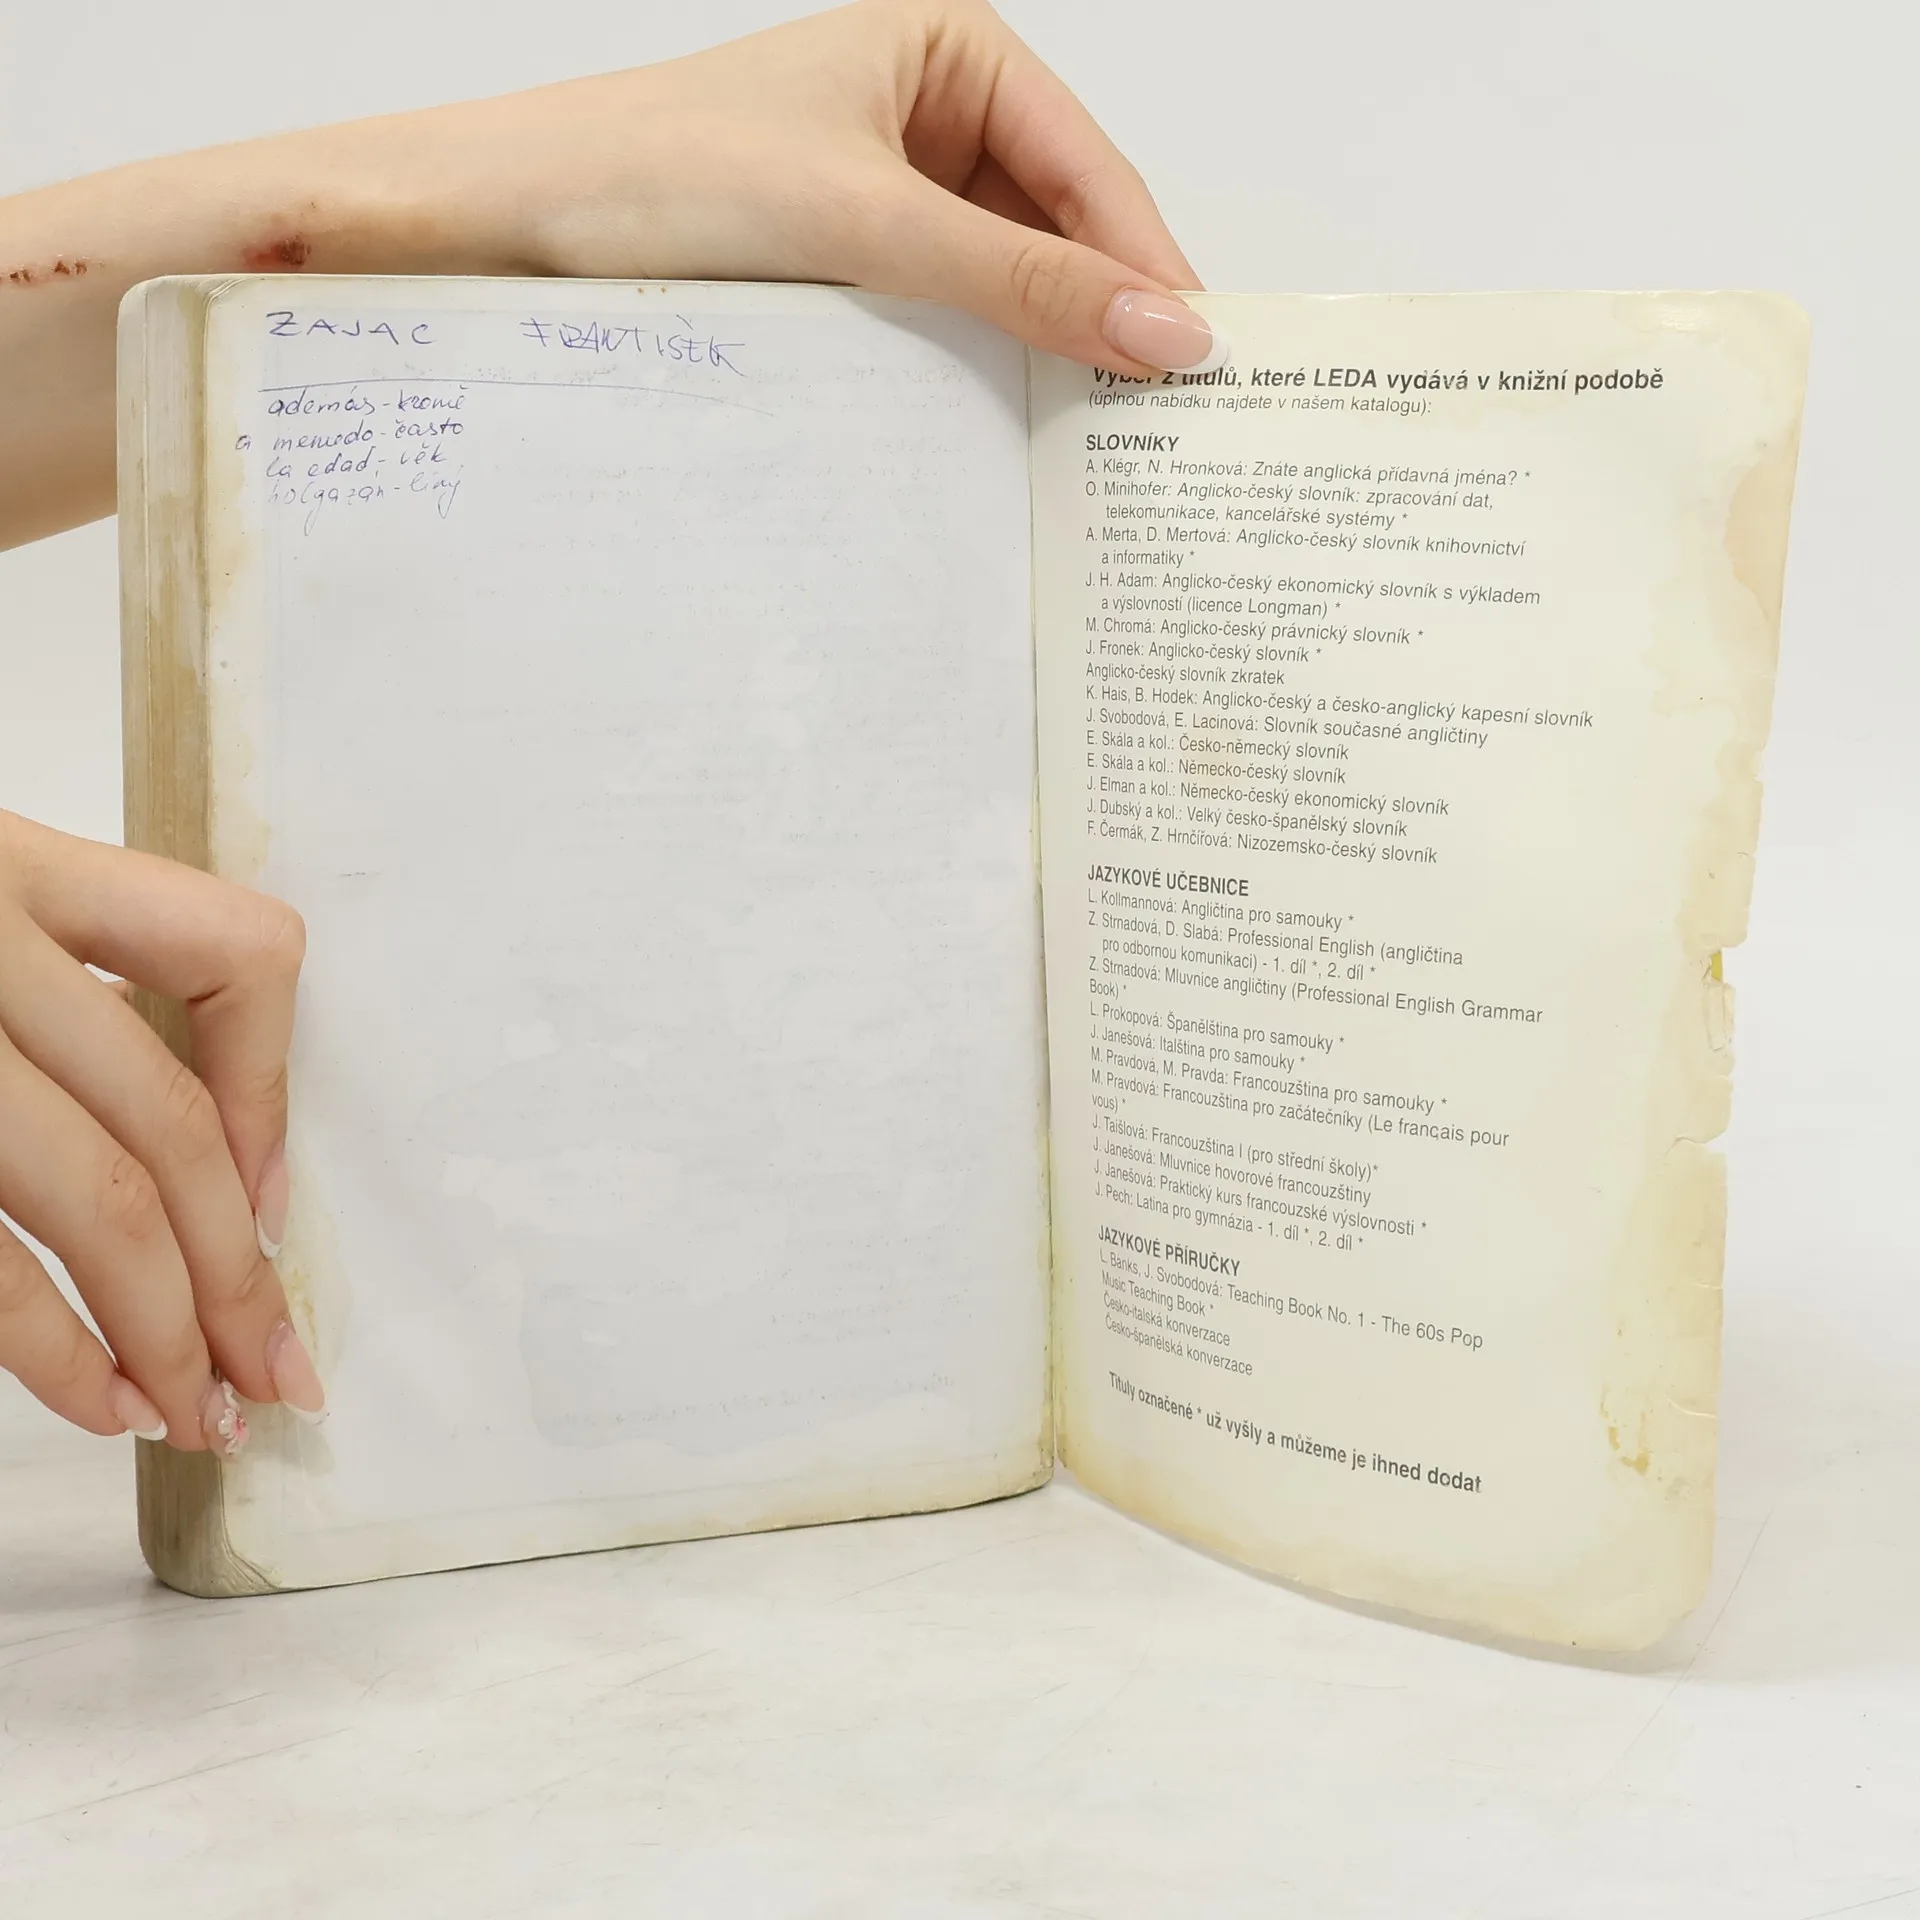 ZAJAC FRANTIŠEK
además - kromě
a menudo - často
la edad - věk
holgazán - líný
Výběr z titulů, které LEDA vydává v knižní podobě
(úplnou nabídku najdete v našem katalogu):
SLOVNÍKY
A. Klégr, N. Hronková: Znáte anglická přídavná jména? *
O. Minihofer: Anglicko-český slovník: zpracování dat,
telekomunikace, kancelářské systémy *
A. Merta, D. Mertová: Anglicko-český slovník knihovnictví
a informatiky *
J. H. Adam: Anglicko-český ekonomický slovník s výkladem
a výslovností (licence Longman) *
M. Chromá: Anglicko-český právnický slovník *
J. Fronek: Anglicko-český slovník *
Anglicko-český slovník zkratek
K. Hais, B. Hodek: Anglicko-český a česko-anglický kapesní slovník
J. Svobodová, E. Lacinová: Slovník současné angličtiny
E. Skála a kol.: Česko-německý slovník
E. Skála a kol.: Německo-český slovník
J. Elman a kol.: Německo-český ekonomický slovník
J. Dubský a kol.: Velký česko-španělský slovník
F. Čermák, Z. Hrnčířová: Nizozemsko-český slovník
JAZYKOVÉ UČEBNICE
L. Kollmannová: Angličtina pro samouky *
Z. Strnadová, D. Slabá: Professional English (angličtina
pro odbornou komunikaci) - 1. díl *, 2. díl *
Z. Strnadová: Mluvnice angličtiny (Professional English Grammar
Book) *
L. Prokopová: Španělština pro samouky *
J. Janešová: Italština pro samouky *
M. Pravdová, M. Pravda: Francouzština pro samouky *
M. Pravdová: Francouzština pro začátečníky (Le français pour
vous) *
J. Taišlová: Francouzština I (pro střední školy)*
J. Janešová: Mluvnice hovorové francouzštiny
J. Janešová: Praktický kurs francouzské výslovnosti *
J. Pech: Latina pro gymnázia - 1. díl *, 2. díl *
JAZYKOVÉ PŘÍRUČKY
L. Banks, J. Svobodová: Teaching Book No. 1 - The 60s Pop
Music Teaching Book *
Česko-italská konverzace
Česko-španělská konverzace
Tituly označené * už vyšly a můžeme je ihned dodat